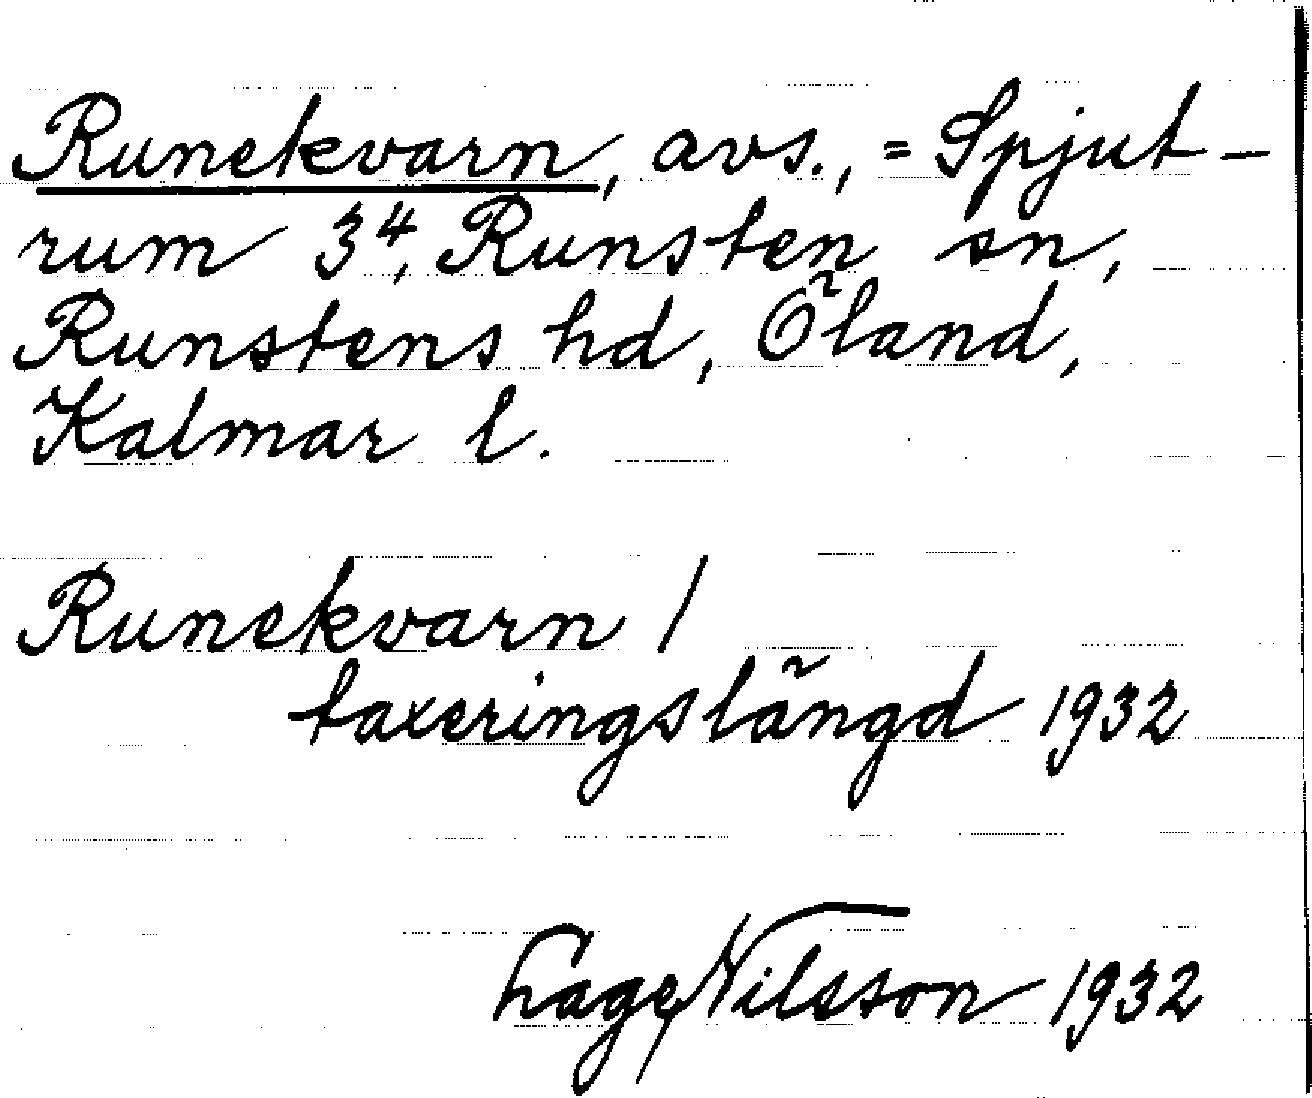 Runekvarn, avs., = Spjut-
rum 3⁴, Runsten sn,
Runstens hd, Öland,
Kalmar l.
Runekvarn /
taxeringslängd 1932
Lage Nilsson 1932